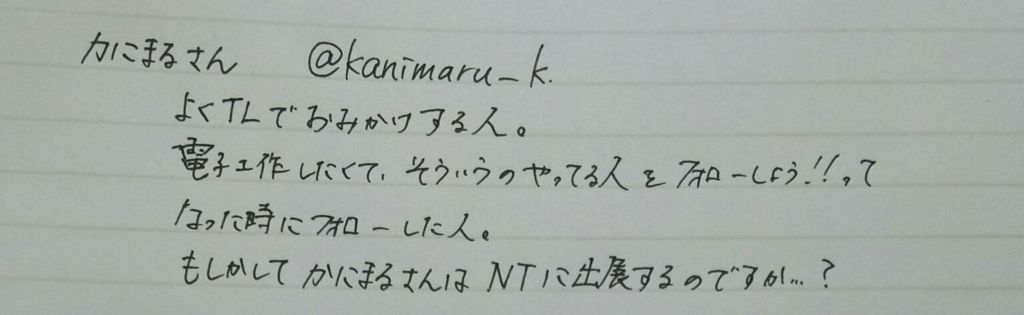 かにまるさん @kanimaru_k.
よくTLでおみかけする人。
電子工作したくて、そういうのやってる人をフォローしよう!!って
なった時にフォローした人。
もしかしてかにまるさんはNTに出展するのですか…?